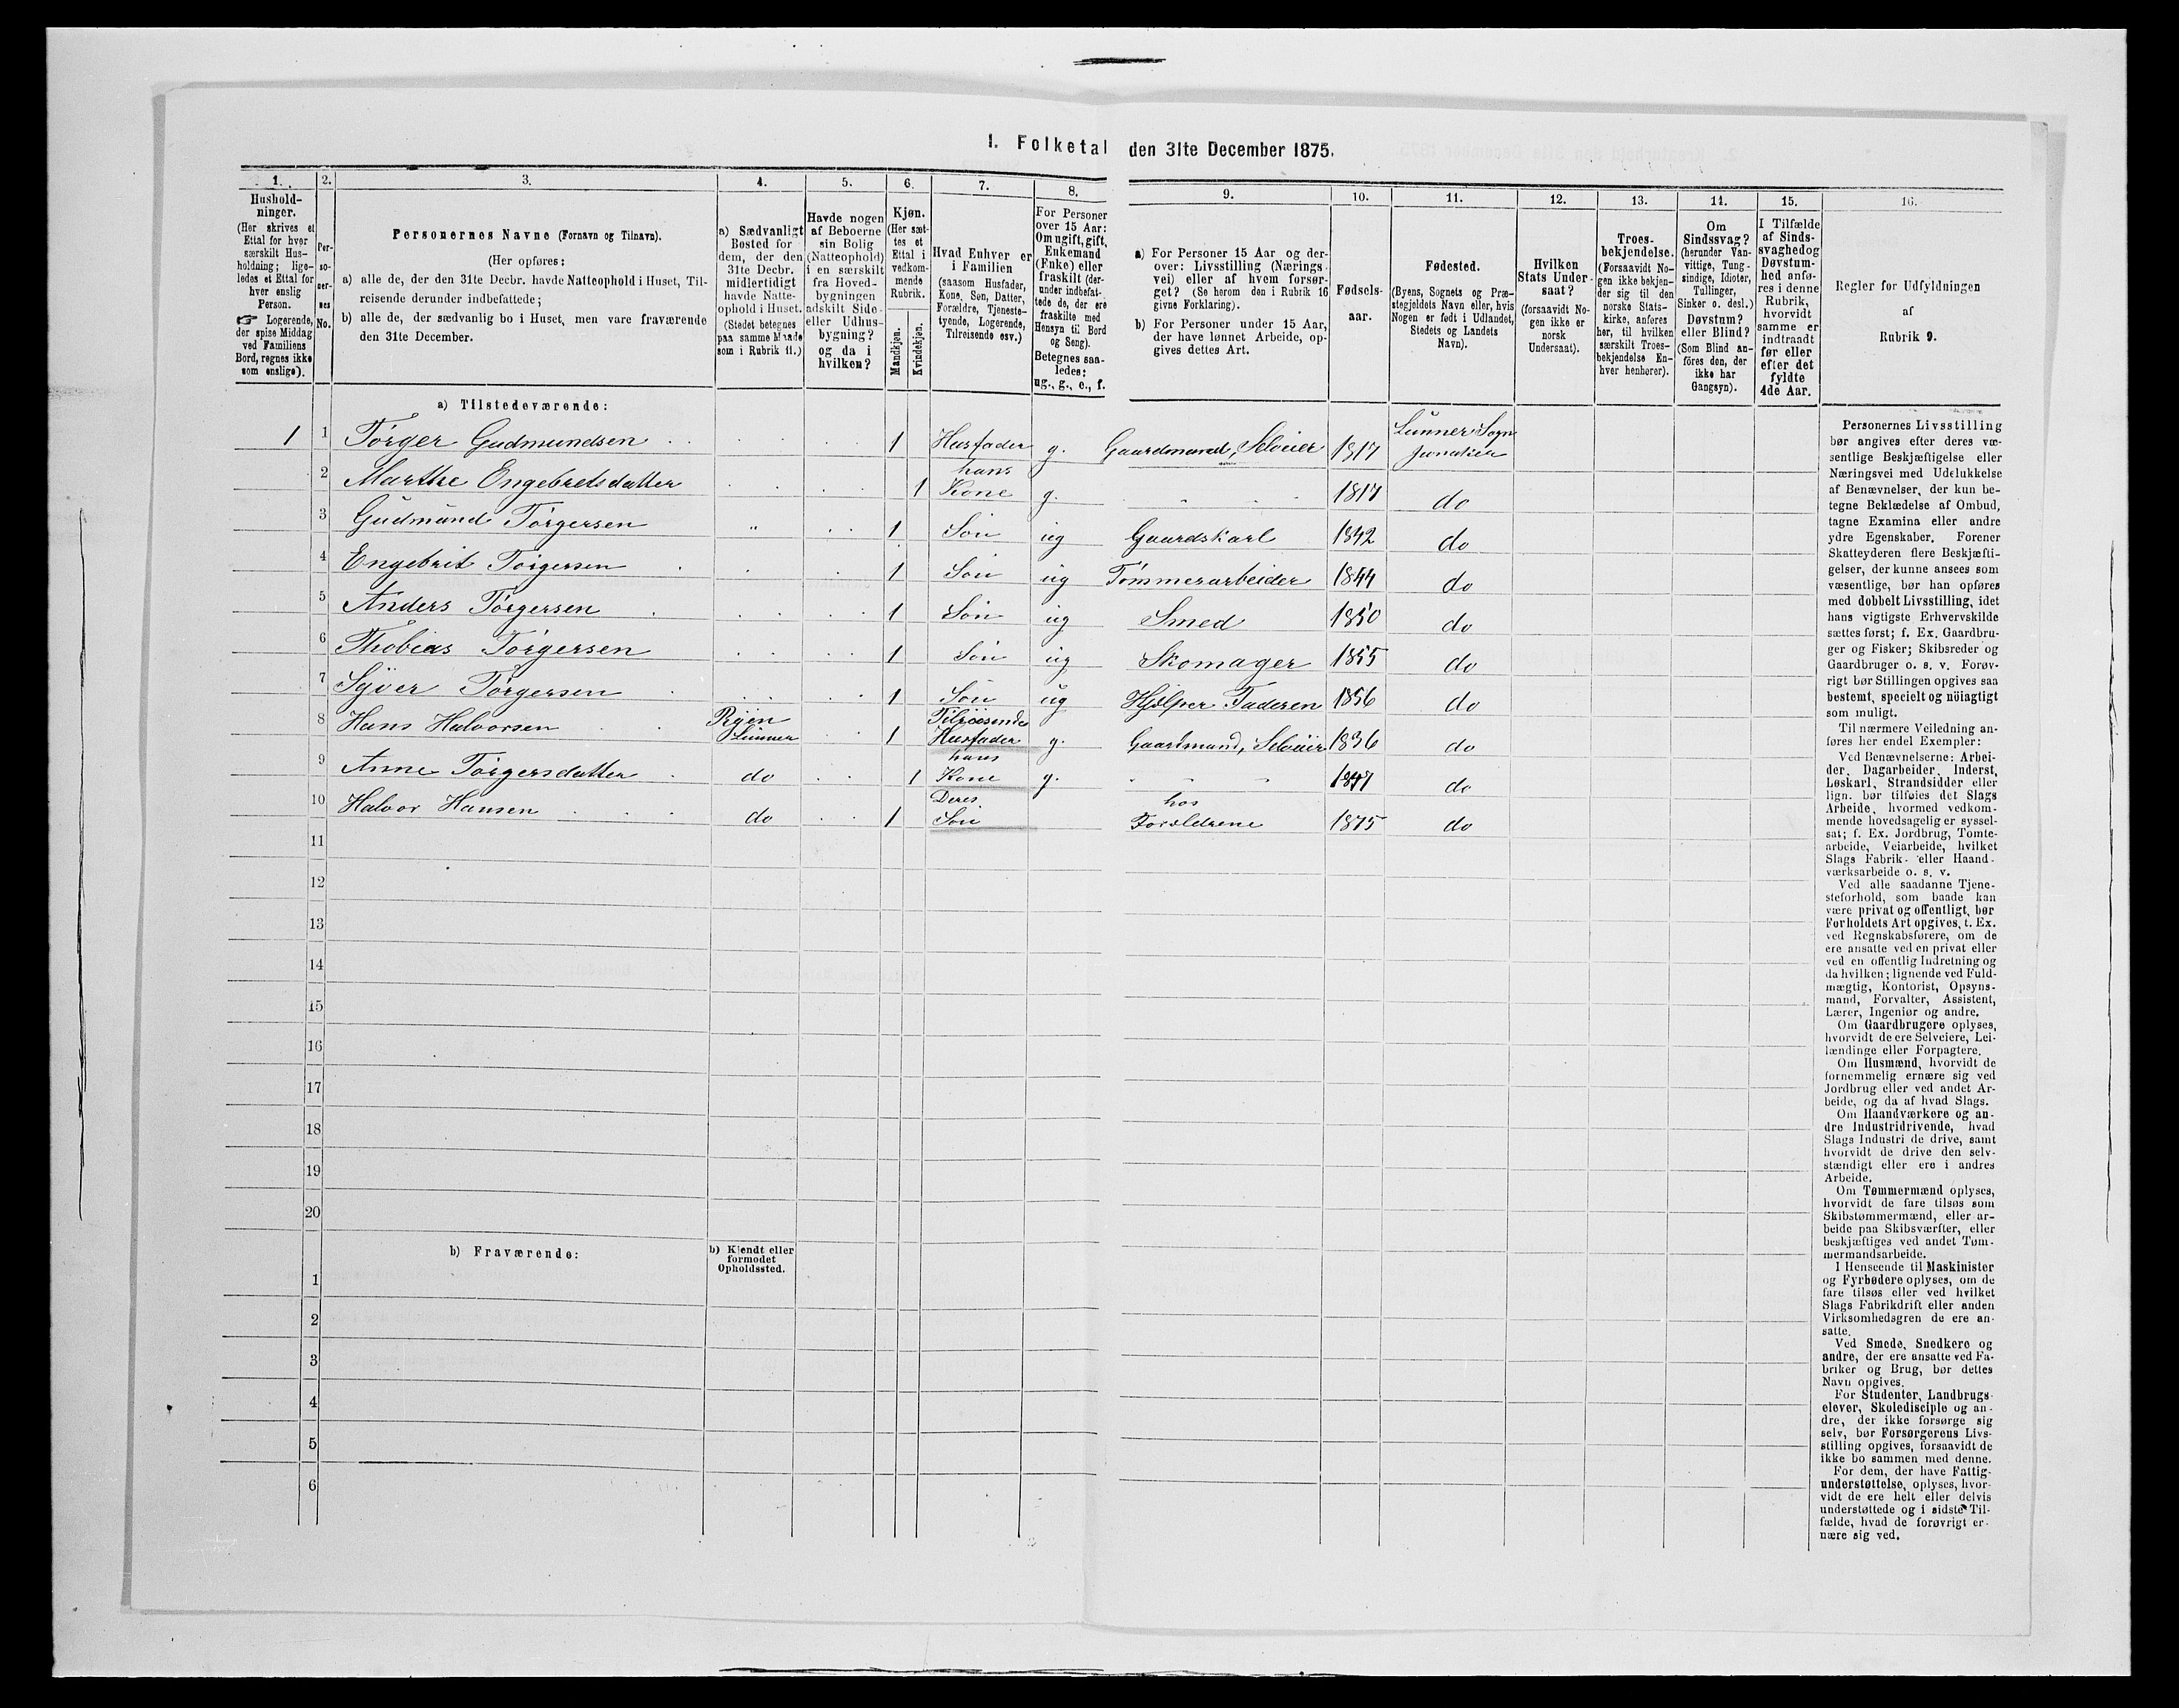 1. Folketal den 31te December 1875.
1.
2.
3.
4.
5.
6.
7.
8.
9.
10.
11.
12.
13.
14.
15.
16.
Hushold-
ninger.
(Her skrives et
Ettal for hver
særskilt Hus-
holdning; lige-
ledes et Ettal for
hver enslig
Person.
☞ Logerende,
der spise Middag
ved Familiens
Bord, regnes ikke
som enslige).
Per-
so-
ner-
nes
No.
Personernes Navne (Fornavn og Tilnavn).
(Her opføres:
a) alle de, der den 31te Decbr. havde Natteophold i Huset, Til-
reisende derunder indbefattede;
b) alle de, der sædvanlig bo i Huset, men vare fraværende
den 31te December.
a) Sædvanligt
Bosted for
dem, der den
31te Decbr.
midlertidigt
havde Natte-
ophold i Huset.
(Stedet betegnes
paa samme Maade
som i Rubrik 11.)
Havde nogen
af Beboerne
sin Bolig
(Natteophold)
i en særskilt
fra Hoved-
bygningen
adskilt Side-
eller Udhus-
bygning?
og da i
hvilken?
Kjøn.
(Her sæt-
tes et
Ettal i
vedkom-
mende
Rubrik.
Mandkjøn.
Kvindekjøn.
Hvad Enhver er
i Familien
(saasom Husfader,
Kone, Søn, Datter,
Forældre, Tjeneste-
tyende, Logerende,
Tilreisende osv.)
For Personer
over 15 Aar:
Om ugift, gift,
Enkemand
(Enke) eller
fraskilt (der-
under indbefat-
tede de, der ere
fraskilte med
Hensyn til Bord
og Seng).
Betegnes saa-
ledes:
ug., g., e., f.
a) For Personer 15 Aar og der-
over: Livsstilling (Nærings-
vei) eller af hvem forsør-
get? (Se herom den i Rubrik 16
givne Forklaring).
b) For Personer under 15 Aar,
der have lønnet Arbeide, op-
gives dettes Art.
Fødsels-
aar.
Fødested.
(Byens, Sognets og Præ-
stegjeldets Navn eller, hvis
Nogen er født i Udlandet,
Stedets og Landets
Navn).
Hvilken
Stats Under-
saat?
(forsaavidt No-
gen ikke er
norsk
Undersaat).
Troes-
bekjendelse.
(Forsaavidt No-
gen ikke bekjen-
der sig til den
norske Stats-
kirke, anføres
her, til hvilken
særskilt Troes-
bekjendelse En-
hver henhører).
Om
Sindssvag?
(herunder Van-
vittige, Tung-
sindige, Idioter,
Tullinger,
Sinker o. desl.)
Døvstum?
eller Blind?
(Som Blind an-
føres den, der
ikke har
Gangsyn).
I Tilfælde
af Sinds-
svaghed og
Døvstum-
hed anfø-
res i denne
Rubrik,
hvorvidt
samme er
indtraadt
før eller
efter det
fyldte
4de Aar.
Regler for Udfyldningen
af
Rubrik 9.
a) Tilstedeværende:
1 1 Torger Gudmundsen 1 Husfader g. Gaardmand, Selveier 1817 Lunner Sogn
Jevnaker
2 Marthe Engebretsdatter 1 hans Kone g. 1817 do
3 Gudmund Torgersen " 1 Søn ug Gaardskarl 1842 do
4 Engebret Torgersen 1 Søn ug Tømmerarbeider 1844 do
5 Anders Torgersen 1 Søn ug Smed 1850 do
6 Thobias Torgersen 1 Søn ug Skomager 1855 do
7 Syver Torgersen 1 Søn ug Hjelper Faderen 1856 do
8 Hans Halvorsen Ryen Lunner 1 Tilreisende Husfader g. Gaardmand, Selveier 1836 do
9 Anne Torgersdatter do 1 hans Kone g. 1847 do
10 Halvor Hansen do 1 Deres Søn hos Forældrene 1875 do
11
12
13
14
15
16
17
18
19
20
b) Fraværende:
b) Kjendt eller
formodet
Opholdssted.
1
2
3
4
5
6
Personernes Livsstilling
bør angives efter deres væ-
sentlige Beskjæftigelse eller
Næringsvei med Udelukkelse
af Benævnelser, der kun be-
tegne Beklædelse af Ombud,
tagne Examina eller andre
ydre Egenskaber. Forener
Skatteyderen flere Beskjæfti-
gelser, der kunne ansees som
væsentlige, bør han opføres
med dobbelt Livsstilling, idet
hans vigtigste Erhvervskilde
sættes først; f. Ex. Gaardbru-
ger og Fisker; Skibsreder og
Gaardbruger o. s. v. Forøv-
rigt bør Stillingen opgives saa
bestemt, specielt og nöiagtigt
som muligt.
Til nærmere Veiledning an-
føres her endel Exempler:
Ved Benævnelserne: Arbei-
der, Dagarbeider, Inderst,
Løskarl, Strandsidder eller
lign. bør tilføies det Slags
Arbeide, hvormed vedkom-
mende hovedsagelig er syssel-
sat; f. Ex. Jordbrug, Tomte-
arbeide, Veiarbeide, hvilket
Slags Fabrik- eller Haand-
værksarbeide o. s. v.
Ved alle saadanne Tjene-
steforhold, som baade kan
være privat og offentligt, bør
Forholdets Art opgives, t. Ex.
ved Regnskabsførere, om de
ere ansatte ved en privat eller
ved en offentlig Indretning og
da hvilken; lignende ved Fuld-
mægtig, Kontorist, Opsyns-
mand, Forvalter, Assistent,
Lærer, Ingeniør og andre.
Om Gaardbrugere oplyses,
hvorvidt de ere Selveiere, Lei-
lændinge eller Forpagtere.
Om Husmænd, hvorvidt de
fornemmelig ernære sig ved
Jordbrug eller ved andet Ar-
beide, og da af hvad Slags.
Om Haandværkere og an-
dre Industridrivende, hvad
Slags Industri de drive, samt
hvorvidt de drive den selv-
stændigt eller ere i andres
Arbeide.
Om Tømmermænd oplyses,
hvorvidt de fare tilsøs som
Skibstømmermænd, eller ar-
beide paa Skibsværfter, eller
beskjæftiges ved andet Tøm-
mermandsarbeide.
I Henseende til Maskinister
og Fyrbødere oplyses, om de
fare tilsøs eller ved hvilket
Slags Fabrikdrift eller anden
Virksomhedsgren de ere an-
satte.
Ved Smede, Snedkere og
andre, der ere ansatte ved Fa-
briker og Brug, bør dettes
Navn opgives.
For Studenter, Landbrugs-
elever, Skoledisciple og an-
dre, der ikke forsørge sig
selv, bør Forsørgerens Livs-
stilling opgives, forsaavidt de
ikke bo sammen med denne.
For dem, der have Fattig-
understøttelse, oplyses, hvor-
vidt de ere helt eller delvis
understøttede og i sidste Til-
fælde, hvad de forøvrigt er-
nære sig ved.